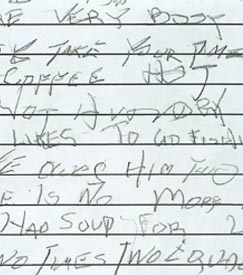 VERY BUSY
TAKE YOUR
COFFEE HOT
NOT HUNGRY
LIKES TO GO FISHIN
OWES HIM TWO
E IS NO MORE
HAD SOUP FOR
NO TIMES TWO EQUA